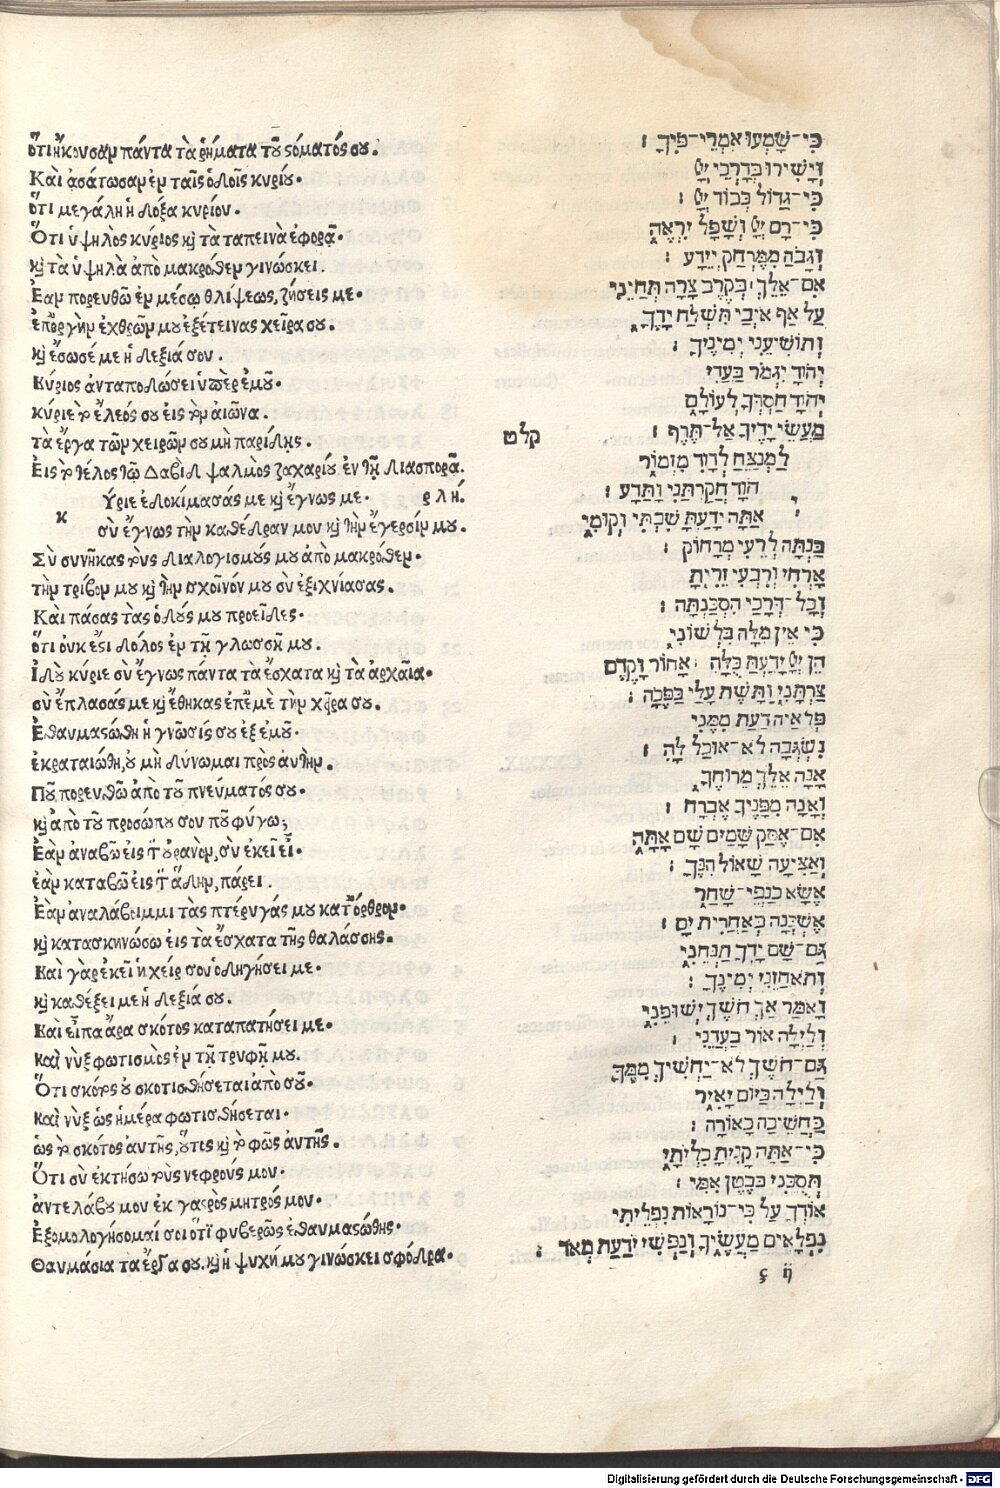 ὅτι ἤκουσαν πάντα τὰ ῥήματα τοῦ στόματός σου.
Καὶ ᾀσάτωσαν ἐν ταῖς ὁδοῖς κυρίου·
ὅτι μεγάλη ἡ δόξα κυρίου.
Ὅτι ὑψηλὸς κύριος κỳ τὰ ταπεινὰ ἐφορᾷ·
κỳ τὰ ὑψηλὰ ἀπὸ μακρόθεν γινώσκει.
Ἐὰν πορευθῶ ἐν μέσῳ θλίψεως, ζήσεις με·
ἐπ' ὀργὴν ἐχθρῶν μου ἐξέτεινας χεῖρα σου.
κỳ ἔσωσέ με ἡ δεξιά σου.
Κύριος ἀνταποδώσει ὑπὲρ ἐμοῦ·
κύριε τὸ ἔλεός σου εἰς τὸν αἰῶνα.
τὰ ἔργα τῶν χειρῶν σου μὴ παρίδῃς.
Εἰς τὸ τέλος τῷ Δαβὶδ ψαλμὸς ζαχαρίου ἐν τῇ διασπορᾷ.
Υριε ἐδοκίμασάς με κỳ ἔγνως με· ρλή.
κ σὺ ἔγνως τὴν καθέδραν μου κỳ τὴν ἔγερσίν μου.
Σὺ συνῆκας τοὺς διαλογισμούς μου ἀπὸ μακρόθεν·
τὴν τρίβον μου κỳ τὴν σχοῖνόν μου σὺ ἐξιχνίασας.
Καὶ πάσας τὰς ὁδούς μου προεῖδες·
ὅτι οὐκ ἔστι δόλος ἐν τῇ γλώσσῃ μου.
Ἰδοὺ κύριε σὺ ἔγνως πάντα τὰ ἔσχατα κỳ τὰ ἀρχαῖα·
σὺ ἔπλασάς με κỳ ἔθηκας ἐπ' ἐμὲ τὴν χεῖρα σου.
Ἐθαυμαστώθη ἡ γνῶσίς σου ἐξ ἐμοῦ·
ἐκραταιώθη, οὐ μὴ δύνωμαι πρὸς αὐτήν.
Ποῦ πορευθῶ ἀπὸ τοῦ πνεύματός σου·
κỳ ἀπὸ τοῦ προσώπου σου ποῦ φύγω;
Ἐὰν ἀναβῶ εἰς τὸν οὐρανὸν, σὺ ἐκεῖ εἶ·
ἐὰν καταβῶ εἰς τὸν ᾅδην, πάρει.
Ἐὰν ἀναλάβοιμι τὰς πτέρυγάς μου κατ' ὄρθρον·
κỳ κατασκηνώσω εἰς τὰ ἔσχατα τῆς θαλάσσης·
Καὶ γὰρ ἐκεῖ ἡ χείρ σου ὁδηγήσει με·
κỳ καθέξει με ἡ δεξιά σου.
Καὶ εἶπα ἄρα σκότος καταπατήσει με·
καὶ νὺξ φωτισμὸς ἐν τῇ τρυφῇ μου.
Ὅτι σκότος οὐ σκοτισθήσεται ἀπὸ σοῦ·
καὶ νὺξ ὡς ἡμέρα φωτισθήσεται·
ὡς τὸ σκότος αὐτῆς, οὕτως κỳ τὸ φῶς αὐτῆς.
Ὅτι σὺ ἐκτήσω τοὺς νεφρούς μου·
ἀντελάβου μου ἐκ γαστρὸς μητρός μου·
Ἐξομολογήσομαί σοι ὅτι φοβερῶς ἐθαυμαστώθης·
Θαυμάσια τὰ ἔργα σου. κỳ ἡ ψυχή μου γινώσκει σφόδρα·
כִּי־שָׁמְעוּ אִמְרֵי־פִיךָ׃
וְיָשִׁירוּ בְּדַרְכֵי יְיָ
כִּי־גָדוֹל כְּבוֹד יְיָ׃
כִּי־רָם יְיָ וְשָׁפָל יִרְאֶה
וְגָבֹהַּ מִמֶּרְחָק יְיֵדָע׃
אִם־אֵלֵךְ בְּקֶרֶב צָרָה תְּחַיֵּנִי
עַל אַף אֹיְבַי תִּשְׁלַח יָדֶךָ
וְתוֹשִׁיעֵנִי יְמִינֶיךָ׃
יְהֹוָה יִגְמֹר בַּעֲדִי
יְהֹוָה חַסְדְּךָ לְעוֹלָם
מַעֲשֵׂי יָדֶיךָ אַל־תֶּרֶף׃
קלט לַמְנַצֵּחַ לְדָוִד מִזְמוֹר
הוָה חֲקַרְתַּנִי וַתֵּדָע׃
י אַתָּה יָדַעְתָּ שִׁבְתִּי וְקוּמִי
בַּנְתָּה לְרֵעִי מֵרָחוֹק׃
אָרְחִי וְרִבְעִי זֵרִיתָ
וְכָל־דְּרָכַי הִסְכַּנְתָּה׃
כִּי אֵין מִלָּה בִּלְשׁוֹנִי
הֵן יְיָ יָדַעְתָּ כֻלָּהּ׃ אָחוֹר וָקֶדֶם
צַרְתָּנִי וַתָּשֶׁת עָלַי כַּפֶּכָה׃
פְּלִאיָה דַעַת מִמֶּנִּי
נִשְׂגְּבָה לֹא־אוּכַל לָהּ׃
אָנָה אֵלֵךְ מֵרוּחֶךָ
וְאָנָה מִפָּנֶיךָ אֶבְרָח׃
אִם־אֶסַּק שָׁמַיִם שָׁם אָתָּה
וְאַצִּיעָה שְּׁאוֹל הִנֶּךָ׃
אֶשָּׂא כַנְפֵי־שָׁחַר
אֶשְׁכְּנָה בְּאַחֲרִית יָם׃
גַּם־שָׁם יָדְךָ תַנְחֵנִי
וְתֹאחֲזֵנִי יְמִינֶךָ׃
וָאֹמַר אַךְ חֹשֶׁךְ יְשׁוּפֵנִי
וְלַיְלָה אוֹר בַּעֲדֵנִי׃
גַּם־חֹשֶׁךְ לֹא־יַחְשִׁיךְ מִמֶּךָ
וְלַיְלָה כַּיּוֹם יָאִיר
כַּחֲשֵׁיכָה כָּאוֹרָה׃
כִּי־אַתָּה קָנִיתָ כִלְיֹתָי
תְּסֻכֵּנִי בְּבֶטֶן אִמִּי׃
אוֹדְךָ עַל כִּי־נוֹרָאוֹת נִפְלֵיתִי
נִפְלָאִים מַעֲשֶׂיךָ וְנַפְשִׁי יֹדַעַת מְאֹד׃
ς ij
Digitalisierung gefördert durch die Deutsche Forschungsgemeinschaft - DFG